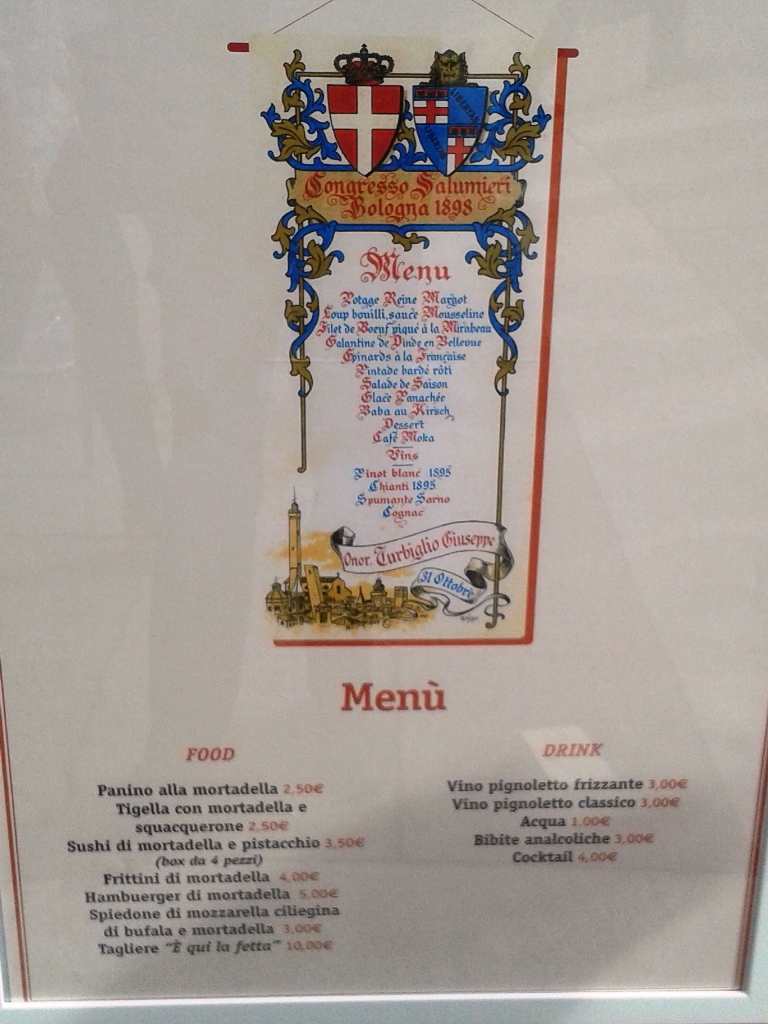 LIBERTAS
LIBERTAS
Congresso Salumieri
Bologna 1898
Menu
Potage Reine Margot
Loup bouilli, sauce Mousseline
Filet de Boeuf piqué à la Mirabeau
Galantine de Dinde en Bellevue
Epinards à la Française
Pintade bardé rôti
Salade de Saison
Glace Panachée
Baba au Kirsch
Dessert
Café Moka
Vins
Pinot blanc 1895
Chianti 1895
Spumante Sarno
Cognac
Onor. Turbiglio Giuseppe
31 Ottobre
Menù
FOOD
Panino alla mortadella 2,50€
Tigella con mortadella e
squacquerone 2,50€
Sushi di mortadella e pistacchio 3,50€
(box da 4 pezzi)
Frittini di mortadella 4,00€
Hambuerger di mortadella 5,00€
Spiedone di mozzarella ciliegina
di bufala e mortadella 3,00€
Tagliere "È qui la fetta" 10,00€
DRINK
Vino pignoletto frizzante 3,00€
Vino pignoletto classico 3,00€
Acqua 1,00€
Bibite analcoliche 3,00€
Cocktail 4,00€